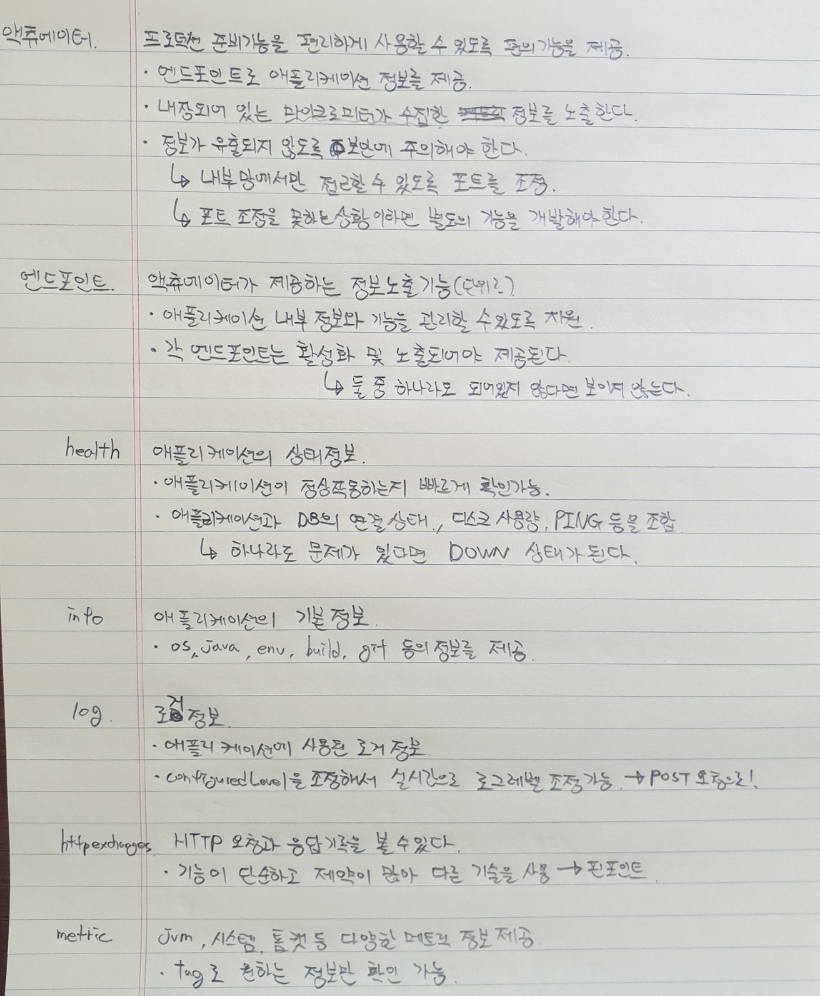 액츄에이터. 프로덕션 준비기능을 편리하게 사용할 수 있도록 편의기능을 제공.
· 엔드포인트로 애플리케이션 정보를 제공.
· 내장되어 있는 마이크로미터가 수집한 정보를 노출한다.
· 정보가 유출되지 않도록 보안에 주의해야 한다.
↳ 내부망에서만 접근할 수 있도록 포트를 조정.
↳ 포트 조정을 못하는 상황이라면 별도의 기능을 개발해야한다.
엔드포인트. 액츄에이터가 제공하는 정보노출기능(단위?)
· 애플리케이션 내부 정보와 기능을 관리할 수 있도록 지원.
· 각 엔드포인트는 활성화 및 노출되어야 제공된다.
↳ 둘 중 하나라도 되어있지 않다면 보이지 않는다.
health 애플리케이션의 상태정보.
· 애플리케이션이 정상작동하는지 빠르게 확인가능.
· 애플리케이션과 DB의 연결상태., 디스크 사용량, PING 등을 조합
↳ 하나라도 문제가 있다면 DOWN 상태가 된다.
info 애플리케이션의 기본정보.
· os, java, env, build, git 등의 정보를 제공.
log. 로거 정보.
· 애플리케이션에 사용된 로거 정보
· configuredLevel을 조정해서 실시간으로 로그레벨 조정가능. → POST 요청으로!
httpexchanges. HTTP 요청과 응답기록을 볼 수 있다.
· 기능이 단순하고 제약이 많아 다른 기술을 사용 → 핀포인트
metric jvm, 시스템, 톰캣 등 다양한 메트릭 정보제공.
· tag로 원하는 정보만 확인 가능.